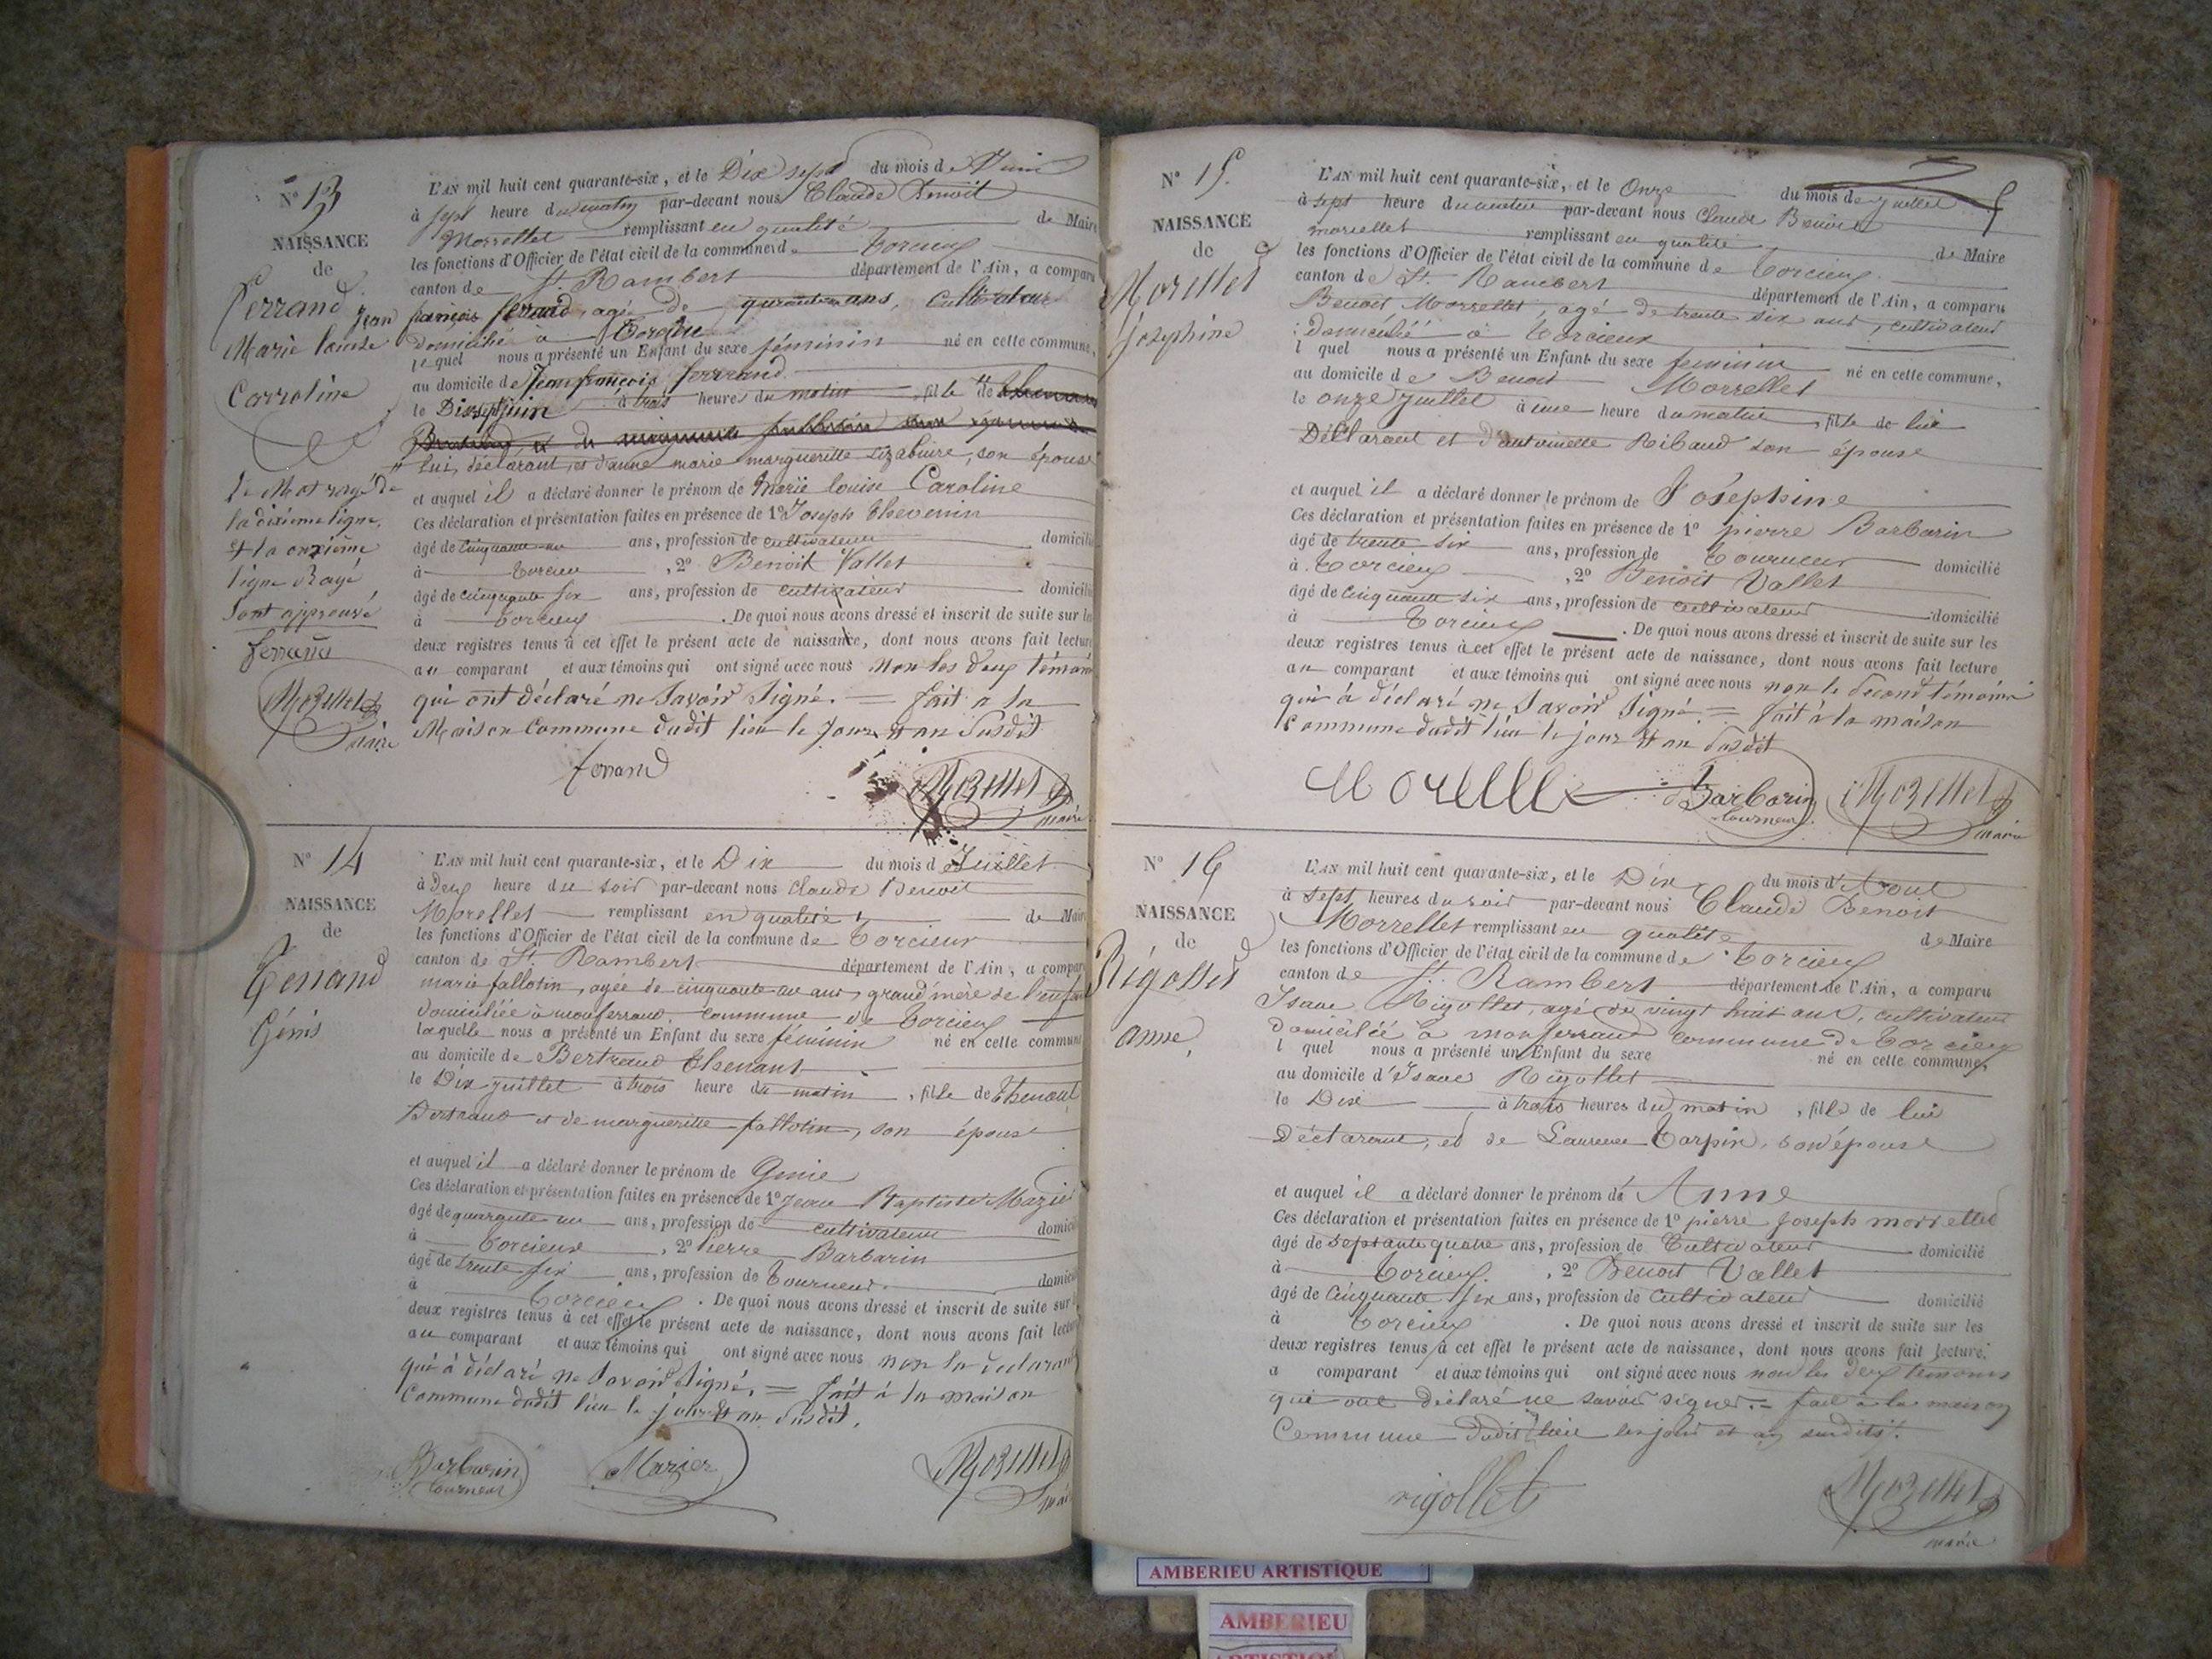 N° 13
NAISSANCE
de
Ferrand
Marie louise
Carroline
L'AN mil huit cent quarante-six, et le Dix sept du mois de Juin
à sept heure du matin par-devant nous Claude Benoit
Morrellet remplissant en qualité de Maire
les fonctions d'Officier de l'état civil de la commune de Torcieu
canton de St. Rambert département de l'Ain, a comparu
Jean françois ferrand, agé de quarante ans, Cultivateur
domicilié à Torcieu
lequel nous a présenté un Enfant du sexe féminin né en cette commune,
au domicile de Jean françois ferrand
le Dixsept juin à trois heure du matin, fille de
lui, déclarant, et d'anne marie margueritte, son épouse
et auquel il a déclaré donner le prénom de Marie louise Caroline
Ces déclaration et présentation faites en présence de 1° Joseph Thevenin
âgé de cinquante un ans, profession de cultivateur domicilié
à Torcieu, 2° Benoit Vallet
âgé de cinquante six ans, profession de cultivateur domicilié
à Torcieu. De quoi nous avons dressé et inscrit de suite sur les
deux registres tenus à cet effet le présent acte de naissance, dont nous avons fait lecture
au comparant et aux témoins qui ont signé avec nous Non les deux témoins
qui ont déclaré ne Savoir Signé. = fait a la
Maison Commune dudit lieu le Jour et an Susdit
le Mot rayé de
la dixième ligne,
et la onzième
ligne Rayé
Sont approuvé
ferrand
Morellet
maire
ferrand
Morellet
maire
N° 14
NAISSANCE
de
Tenand
Génis
L'AN mil huit cent quarante-six, et le Dix du mois d Juillet
à deux heure du soir par-devant nous Claude Benoit
Morellet remplissant en qualité de Maire
les fonctions d'Officier de l'état civil de la commune de Torcieux
canton de St. Rambert département de l'Ain, a comparu
marie fallotin, agée de cinquante un ans, grand'mère de l'enfant
domiciliée à monferrand, commune de Torcieux
laquelle nous a présenté un Enfant du sexe féminin né en cette commune
au domicile de Bertrand Thenant
le Dix juillet à trois heure du matin, fille de Thenant
Bertrand et de margueritte fallotin, son épouse
et auquel il a déclaré donner le prénom de Genie
Ces déclaration et présentation faites en présence de 1° Jean Baptiste Mazier
âgé de quarante un ans, profession de cultivateur domicilié
à Torcieux, 2° Pierre Barbarin
âgé de trente six ans, profession de Tourneur domicilié
à Torcieux. De quoi nous avons dressé et inscrit de suite sur les
deux registres tenus à cet effet le présent acte de naissance, dont nous avons fait lecture
au comparant et aux témoins qui ont signé avec nous non la declarante
qui à déclaré ne Savoir Signé. = fait à la maison
Commune dudit lieu le jour et an Susdit.
Barbarin
tourneur
Mazier
Morellet
maire
N° 15
NAISSANCE
de
Morellet
Joséphine
L'AN mil huit cent quarante-six, et le Onze du mois de juillet
à sept heure du matin par-devant nous Claude Benoit
morellet remplissant en qualité de Maire
les fonctions d'Officier de l'état civil de la commune de Torcieux
canton de St. Rambert département de l'Ain, a comparu
Benoit Morrellet, agé de trente six ans, cultivateur
domicilié à Torcieux
l quel nous a présenté un Enfant du sexe feminin né en cette commune,
au domicile de Benoit Morrellet
le onze juillet à une heure du matin, fille de lui
Déclarant et d'antoinette Ribaud son épouse
et auquel il a déclaré donner le prénom de Joséphine
Ces déclaration et présentation faites en présence de 1° pierre Barbarin
âgé de trente six ans, profession de Tourneur domicilié
à Torcieux, 2° Benoit Vallet
âgé de cinquante six ans, profession de cultivateur domicilié
à Torcieux. De quoi nous avons dressé et inscrit de suite sur les
deux registres tenus à cet effet le présent acte de naissance, dont nous avons fait lecture
au comparant et aux témoins qui ont signé avec nous non le Second témoin
qui à déclaré ne Savoir Signé. = fait à la maison
Commune dudit lieu le jour et an Susdit
Morelle
Barbarin
tourneur
Morellet
maire
N° 16
NAISSANCE
de
Rigollet
anne,
L'AN mil huit cent quarante-six, et le Dix du mois d'Aout
à sept heures du soir par-devant nous Claude Benoit
Morrellet remplissant en qualité de Maire
les fonctions d'Officier de l'état civil de la commune de Torcieux
canton de St. Rambert département de l'Ain, a comparu
Isaac Rigollet, agé de vingt huit ans, cultivateur
domicilié à monferrand commune de Torcieux
l quel nous a présenté un Enfant du sexe né en cette commune,
au domicile d'Isaac Rigollet
le Dix à trois heures du matin, fille de lui
Déclarant, et de Laurence Tarpin, son épouse
et auquel il a déclaré donner le prénom de Anne
Ces déclaration et présentation faites en présence de 1° pierre Joseph morrellet
âgé de septante quatre ans, profession de Cultivateur domicilié
à Torcieux, 2° Benoit Vallet
âgé de Cinquante six ans, profession de Cultivateur domicilié
à Torcieux. De quoi nous avons dressé et inscrit de suite sur les
deux registres tenus à cet effet le présent acte de naissance, dont nous avons fait lecture
a comparant et aux témoins qui ont signé avec nous non les deux temoins
qui ont déclaré ne savoir signer. = fait à la maison
Commune dudit lieu les jour et an susdits.
rigollet
Morellet
maire
AMBERIEU ARTISTIQUE
AMBERIEU
ARTISTIQUE